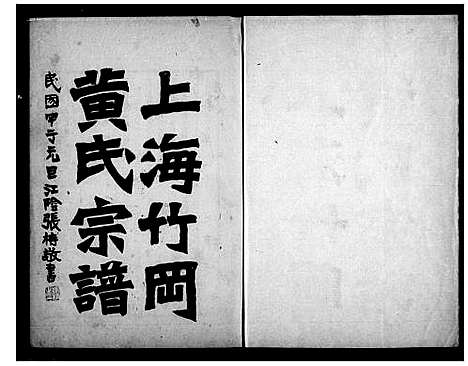 上海竹岡
黃氏宗譜
民國甲子元旦江陰張
敬書